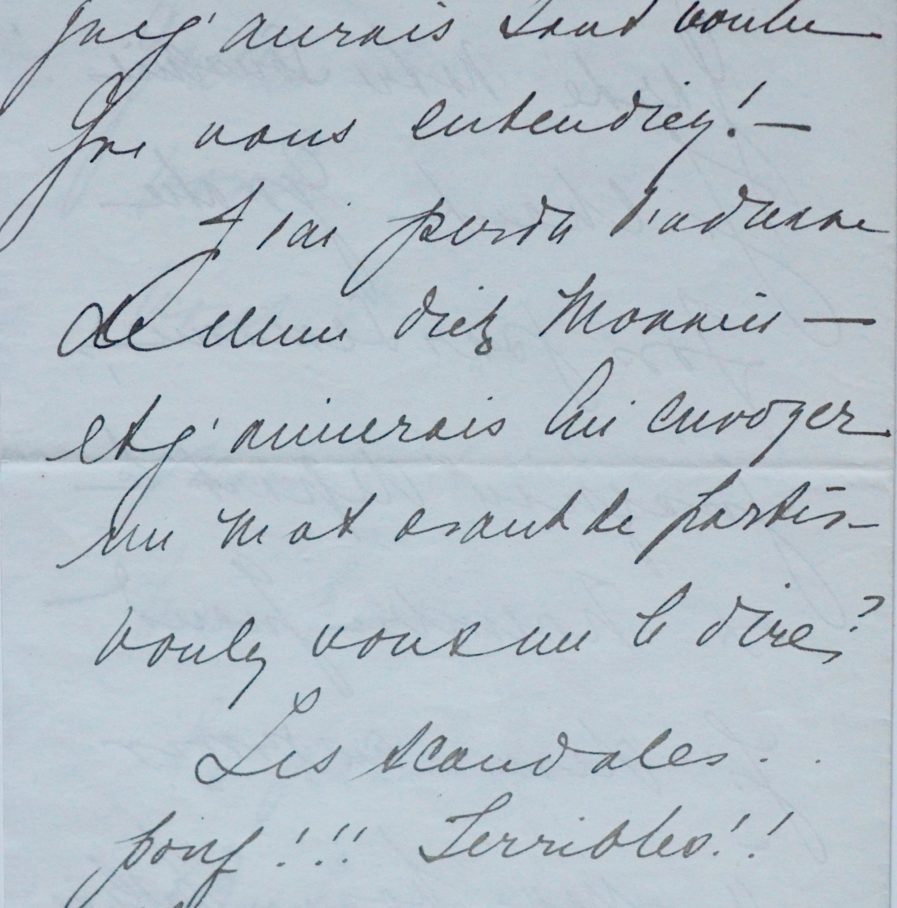 que j'aurais tant voulu
que vous entendiez! —
J'ai perdu l'adresse
de Mme Dietz Monnin —
et j'aimerais lui envoyer
un mot avant de partir —
voulez vous me le dire?
Les scandales . .
pouf!!!! Terribles!!